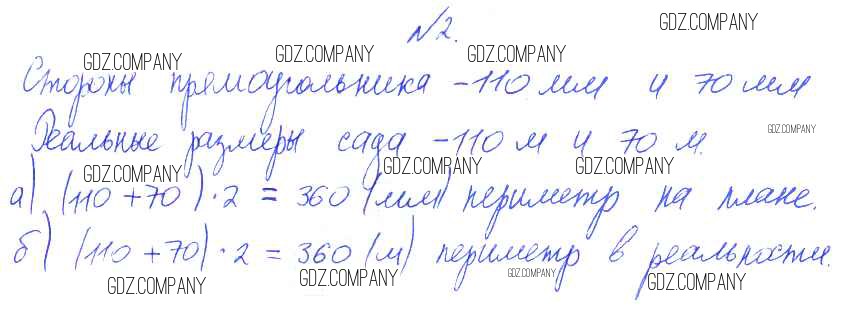 №2.
Стороны прямоугольника – 110 мм и 70 мм
Реальные размеры сада – 110 м и 70 м.
а) (110 + 70) · 2 = 360 (мм) периметр на плане.
б) (110 + 70) · 2 = 360 (м) периметр в реальности.
GDZ.COMPANY
GDZ.COMPANY
GDZ.COMPANY
GDZ.COMPANY
GDZ.COMPANY
GDZ.COMPANY
GDZ.COMPANY
GDZ.COMPANY
GDZ.COMPANY
GDZ.COMPANY
GDZ.COMPANY
GDZ.COMPANY